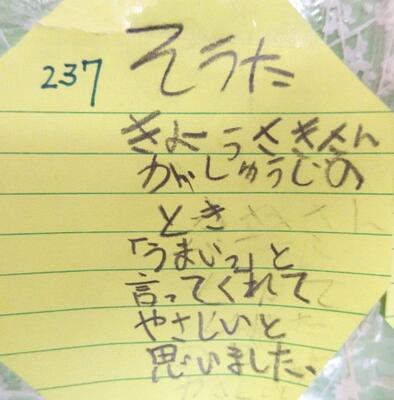 237
そうた
きょうさきさん
がしゅうじの
とき
「うまいっ」と
言ってくれて
やさしいと
思いました。